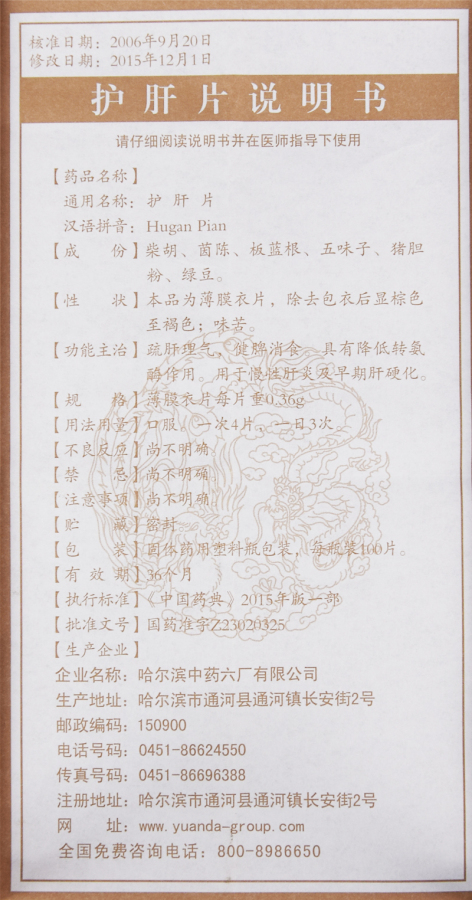 核准日期：2006年9月20日
修改日期：2015年12月1日
护肝片说明书
请仔细阅读说明书并在医师指导下使用
【药品名称】
通用名称：护 肝 片
汉语拼音：Hugan Pian
【成 份】柴胡、茵陈、板蓝根、五味子、猪胆
粉、绿豆。
【性 状】本品为薄膜衣片，除去包衣后显棕色
至褐色；味苦。
【功能主治】疏肝理气，健脾消食。具有降低转氨
酶作用。用于慢性肝炎及早期肝硬化。
【规 格】薄膜衣片每片重0.36g
【用法用量】口服。一次4片，一日3次。
【不良反应】尚不明确
【禁 忌】尚不明确。
【注意事项】尚不明确。
【贮 藏】密封
【包 装】固体药用塑料瓶包装，每瓶装100片。
【有 效 期】36个月
【执行标准】《中国药典》2015年版一部
【批准文号】国药准字Z23020325
【生产企业】
企业名称：哈尔滨中药六厂有限公司
生产地址：哈尔滨市通河县通河镇长安街2号
邮政编码：150900
电话号码：0451-86624550
传真号码：0451-86696388
注册地址：哈尔滨市通河县通河镇长安街2号
网 址：www.yuanda-group.com
全国免费咨询电话：800-8986650